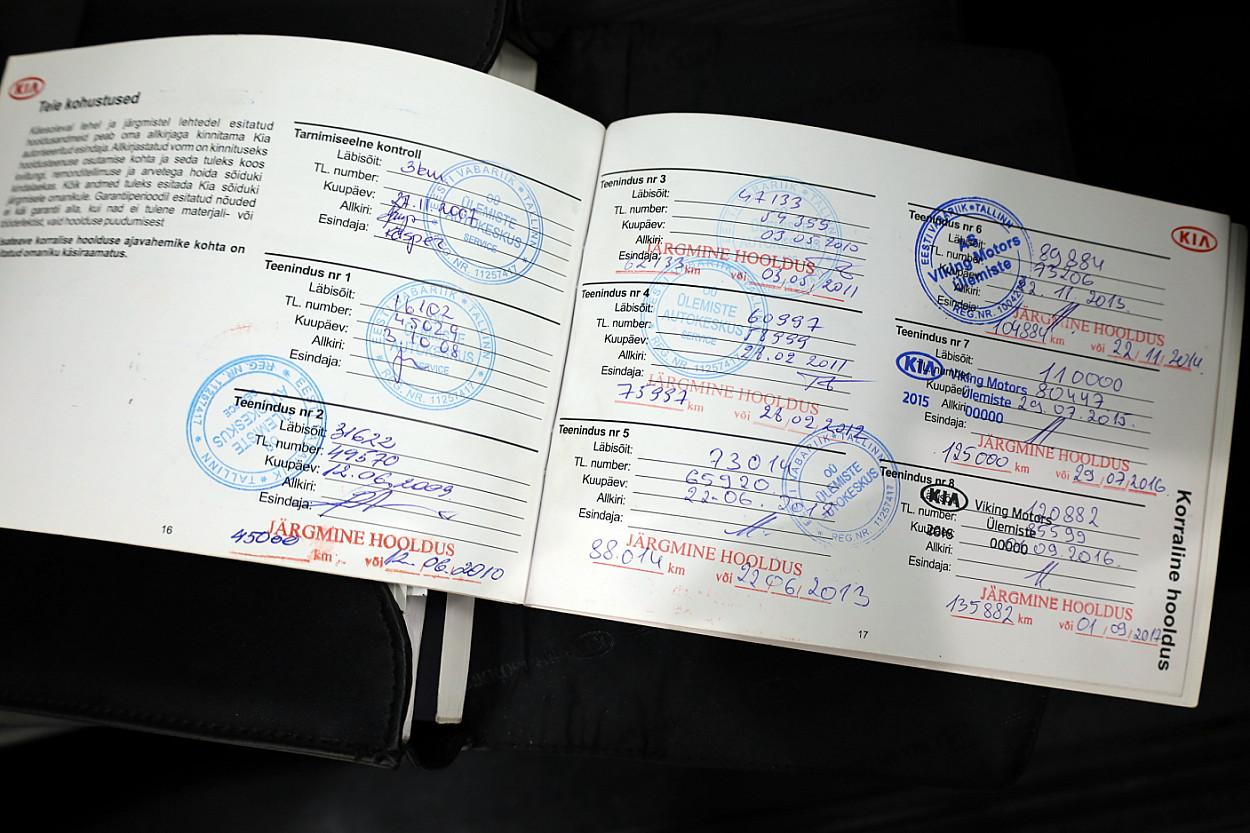 KIA
Teie kohustused
Käesoleval lehel ja järgmistel lehtedel esitatud
hooldusandmeid peab oma allkirjaga kinnitama Kia
autoriseeritud esindaja. Allkirjastatud vorm on kinnituseks
hooldusteenuse osutamise kohta ja seda tuleks koos
remonditellimuse ja arvetega hoida sõiduki
Kõik andmed tuleks esitada Kia sõiduki
järgmisele omanikule. Garantiiperioodil esitatud nõuded
ei kāi garantii alla, kui nad ei tulene materjali- või
vaid hoolduse puudumisest
korralise hoolduse ajavahemike kohta on
omaniku käsiraamatus.
Tarnimiseelne kontroll
Läbisõit: 3km
TL. number:
Kuupäev: 2007
Allkiri:
Esindaja: Kasper
EESTI VABARIIK * TALLINN
OÜ ÜLEMISTE AUTOKESKUS
SERVICE
REG. NR. 11257417
Teenindus nr 1
Läbisõit: 16102
TL. number: 45029
Kuupäev: 3.10.08
Allkiri:
Esindaja:
SERVICE
REG. NR. 11257417
Teenindus nr 2
Läbisõit: 31622
TL. number: 49570
Kuupäev: 12.06.2009
Allkiri:
Esindaja:
TALLINN * REG. NR. 11257417
JÄRGMINE HOOLDUS
45000 km või 12.06.2010
16
Teenindus nr 3
Läbisõit: 47133
TL. number: 54359
Kuupäev: 03.05.2010
Allkiri:
Esindaja:
JÄRGMINE HOOLDUS
62133 km või 03.05.2011
Teenindus nr 4
Läbisõit: 60997
TL. number: 58999
Kuupäev: 28.02 2011
Allkiri:
Esindaja:
OÜ ÜLEMISTE AUTOKESKUS
SERVICE
REG. NR. 11257417
JÄRGMINE HOOLDUS
75997 km või 28.02.2012
Teenindus nr 5
Läbisõit: 73014
TL. number: 65920
Kuupäev: 22.06.
Allkiri:
Esindaja:
EESTI VABARIIK * TALLINN
OÜ ÜLEMISTE AUTOKESKUS
REG. NR. 11257417
JÄRGMINE HOOLDUS
88.014 km või 22 06 2013
17
KIA
Teenindus nr 6
Läbisõit: 89884
TL. number: 73206
Kuupäev: 11.2013.
Allkiri:
Esindaja:
EESTI VABARIIK * TALLINN
AS Viking Motors Ülemiste
JÄRGMINE HOOLDUS
104884 km või 22/11/2014.
Teenindus nr 7
Läbisõit: 110000
TL. number: 80447
Kuupäev: 29.07.2015.
Allkiri:
Esindaja:
KIA Viking Motors
Ülemiste
2015 00000
JÄRGMINE HOOLDUS
125000 km või 29/07/2016.
Teenindus nr 8
Läbisõit: 120882
TL. number: 85599
Kuupäev: 09 2016.
Allkiri:
Esindaja:
KIA Viking Motors
Ülemiste
00000
JÄRGMINE HOOLDUS
135882 km või 01/09/2017
Korraline hooldus